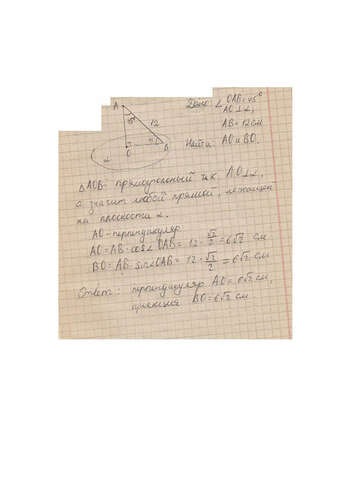 Дано: ∠OAB=45°
AO⊥α,
AB=12см
Найти: AO и BO.
A
45°
12
O
B
α
△AOB- прямоугольный т.к AO⊥α,
а значит любой прямой, лежащей
на плоскости α.
AO-перпендикуляр
AO=AB·cos∠OAB=12·√2/2=6√2 см
BO=AB·sin∠OAB=12·√2/2=6√2 см
Ответ: перпендикуляр AO=6√2см,
проекция BO=6√2 см